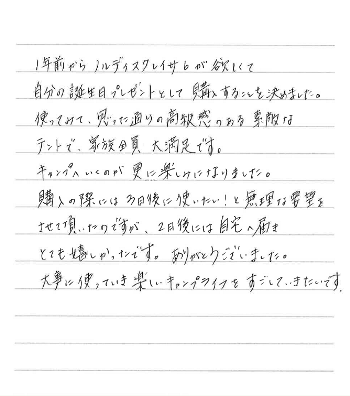 1年前から ノルディスクレイサ6が欲しくて
自分の誕生日プレゼントとして購入することを決めました。
使ってみて、思った通りの高級感のある素敵な
テントで、家族全員 大満足です。
キャンプへいくのが更に楽しみになりました。
購入の際には3日後に使いたい!と無理な要望を
させて頂いたのですが、2日後には自宅へ届き
とても嬉しかったです。ありがとうございました。
大事に使っていき楽しいキャンプライフをすごしていきたいです